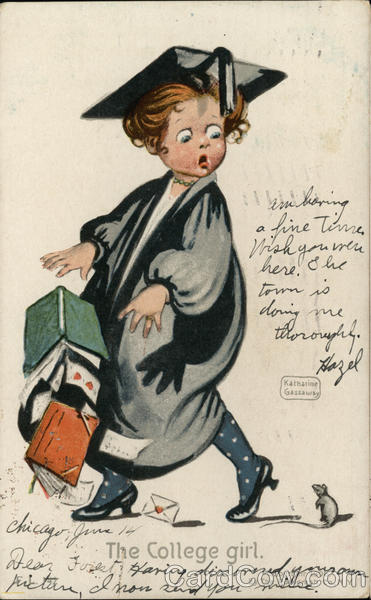 am having
a fine Time.
Wish you were
here. The
town is
doing me
thoroughly.
Hazel
Katharine
Gassaway
Chicago, June 14
The College girl.
Dear Forest: Having discovered your own
picture, I now send you mine.
CardCow.com